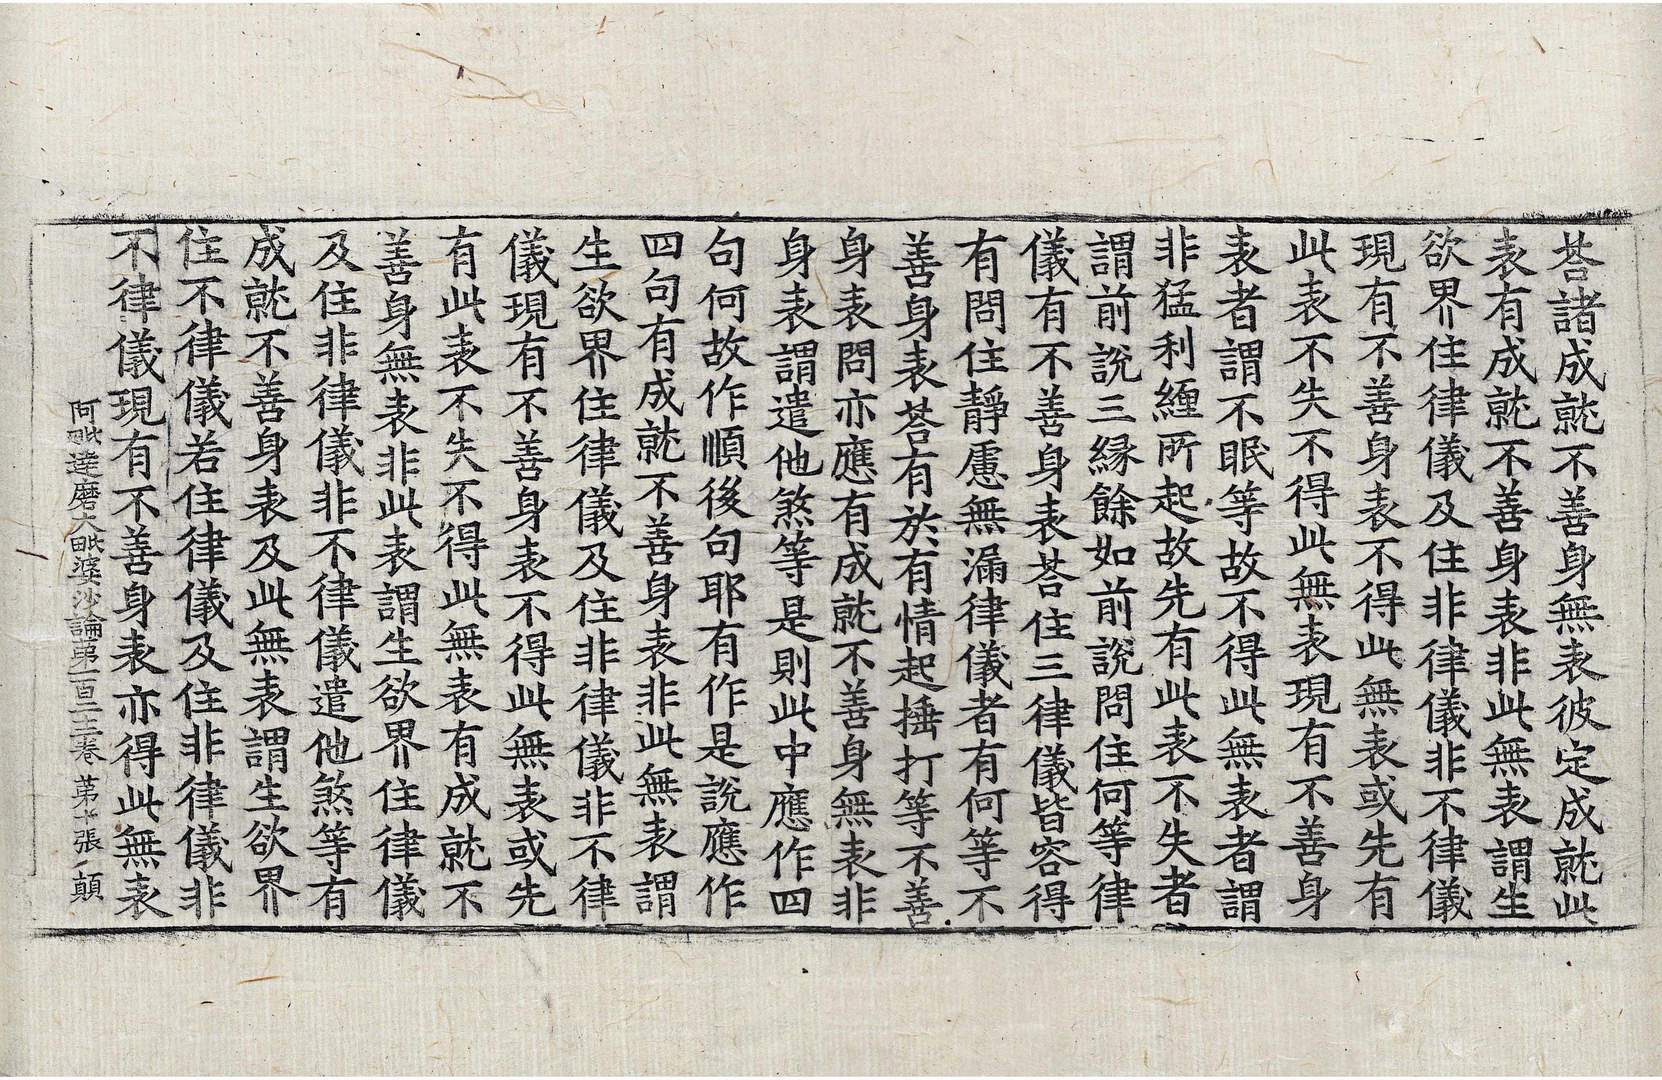 荅諸成就不善身無表彼定成就此
表有成就不善身表非此無表謂生
欲界住律儀及住非律儀非不律儀
現有不善身表不得此無表或先有
此表不失不得此無表現有不善身
表者謂不眠等故不得此無表者謂
非猛利纏所起故先有此表不失者
謂前說三緣餘如前說問住何等律
儀有不善身表荅住三律儀皆容得
有問住靜慮無漏律儀者有何等不
善身表荅有於有情起捶打等不善
身表問亦應有成就不善身無表非
身表謂遣他煞等是則此中應作四
句何故作順後句耶有作是說應作
四句有成就不善身表非此無表謂
生欲界住律儀及住非律儀非不律
儀現有不善身表不得此無表或先
有此表不失不得此無表有成就不
善身無表非此表謂生欲界住律儀
及住非律儀非不律儀遣他煞等有
成就不善身表及此無表謂生欲界
住不律儀若住律儀及住非律儀非
不律儀現有不善身表亦得此無表
阿毗達磨大毗婆沙論第一百二十三卷 第十張 顛